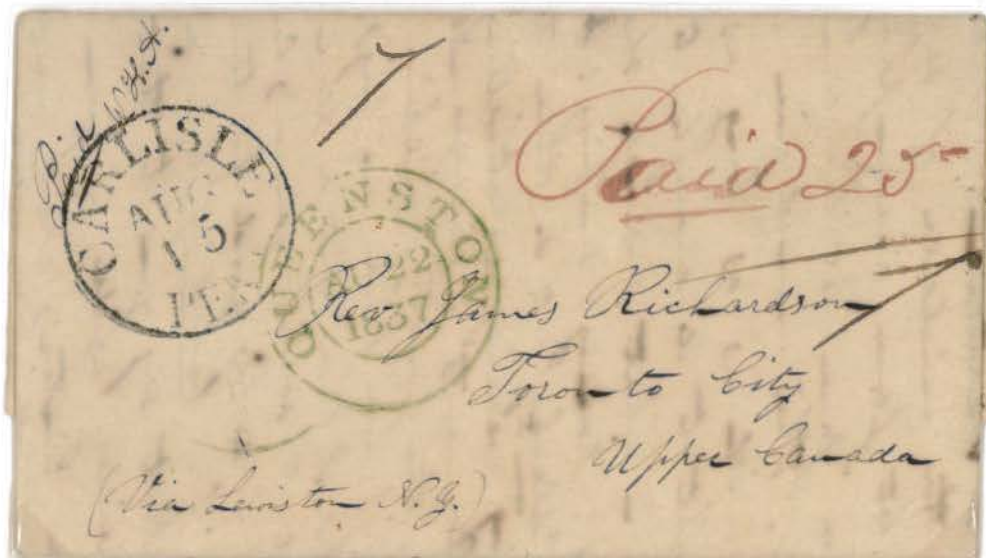 Paid
7
Paid 25
CARLISLE
AUG
15
PEN
QUEENSTON
AU 22
1837
7
Rev James Richardson
Toronto City
Upper Canada
(Via Lewiston N.Y.)